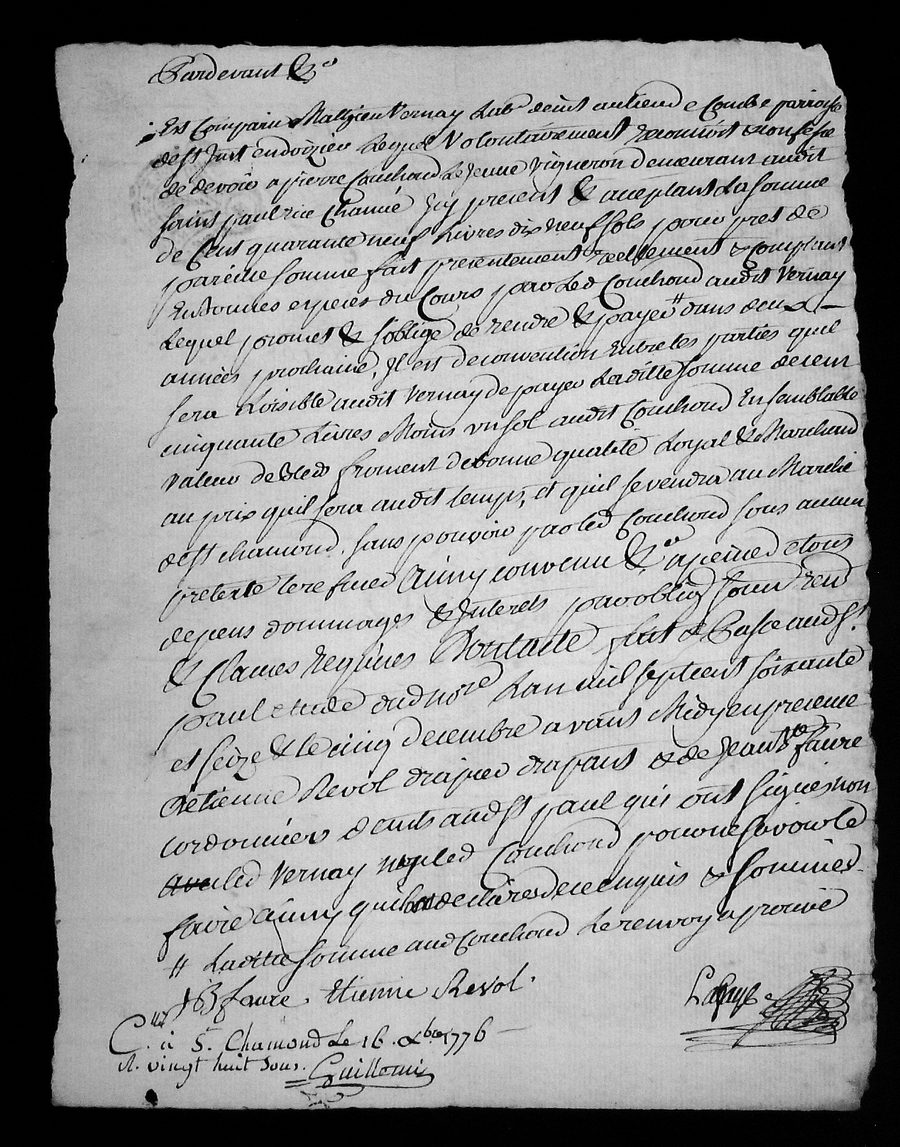 Pardevant &c
Est Comparu Mathieu Vernay Labr deint au lieu de Combe parroisse
de st Just en doizieu Lequel Volontairement reconnoit & confesse
de devoir a pierre Couchoud Le Jeune vigneron demeurant audit
saint paul Icy present & aceptant La somme
de Cent quarante neuf Livres dix neuf sols pour prest de
pareille somme fait presentement reellement & Comptant
En bonnes especes du Cours par Led Couchoud audit Vernay
Lequel promet & s'oblige de rendre & payer # dans deux
années prochaine, Il est de convention Entre les parties quil
sera Loisible audit Vernay de payer Laditte somme de cent
cinquante Livres Moins un sol audit Couchoud En semblable
valeur de Bled froment de bonne qualité Loyal & Marchand
au prix quil sera audit temps, et quil se vendra au Marché
de st chamond, sans pouvoir par led Couchoud sous aucun
pretexte le refuser Ainsy convenu &c a peine de tous
depens dommages & Interets par oblig soum ren
& Clauses requises Dont acte fait & Passé aud st
paul etude dud nore L'an mil sept cent soixante
et seize & le cinq decembre avant Midy en presence
d'etienne Revol drapier drapant & de Jean Bte faure
cordonniers deints aud st paul qui ont signés non
led Vernay ny led Couchoud pour ne savoir le
faire ainsy quils ont declarés de ce enquis & sommés
# Laditte somme aud Couchoud Le renvoy aprouvé
JB faure . Etienne Revol .
Cllé à St. Chamond Le 16. Xbre 1776
R. vingt huit sous. Guillomi